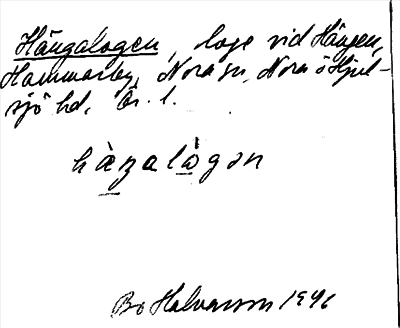 Hängalogen, loge vid Hängen,
Hammarby, Nora sn, Nora o Hjul-
sjö hd, Ör. l.
hàŋalògən
Bo Halvarson 1946